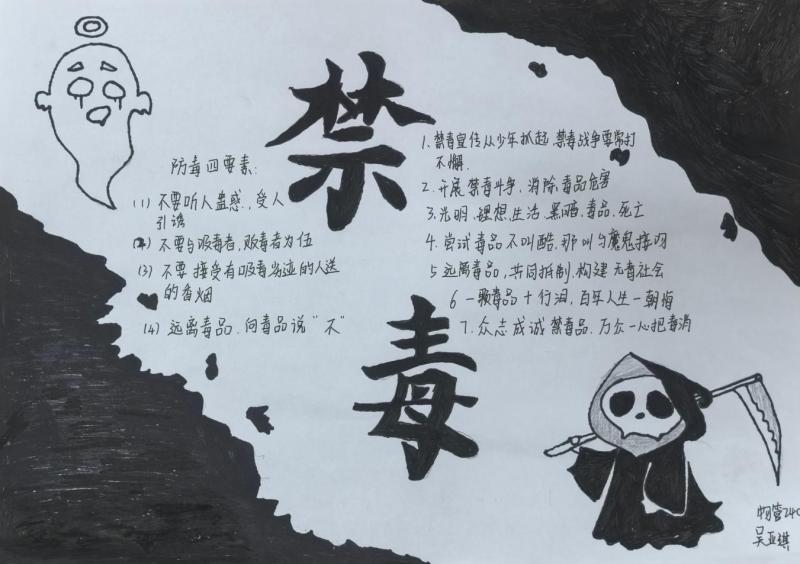 禁
毒
防毒四要素:
(1) 不要听人蛊惑,受人
引诱
(2) 不要与吸毒者,贩毒者为伍
(3) 不要接受有吸毒劣迹的人送
的香烟
(4) 远离毒品.向毒品说“不”
1. 禁毒宣传从少年抓起 禁毒战争要常打
不懈.
2. 开展禁毒斗争,消除毒品危害
3. 光明.理想.生活.黑暗.毒品.死亡
4. 尝试毒品不叫酷.那叫与魔鬼接吻
5 远离毒品,共同抵制,构建无毒社会
6 一颗毒品十行泪,百年人生一朝悔
7. 众志成诚禁毒品.万众一心把毒消
物管240
吴亚琪